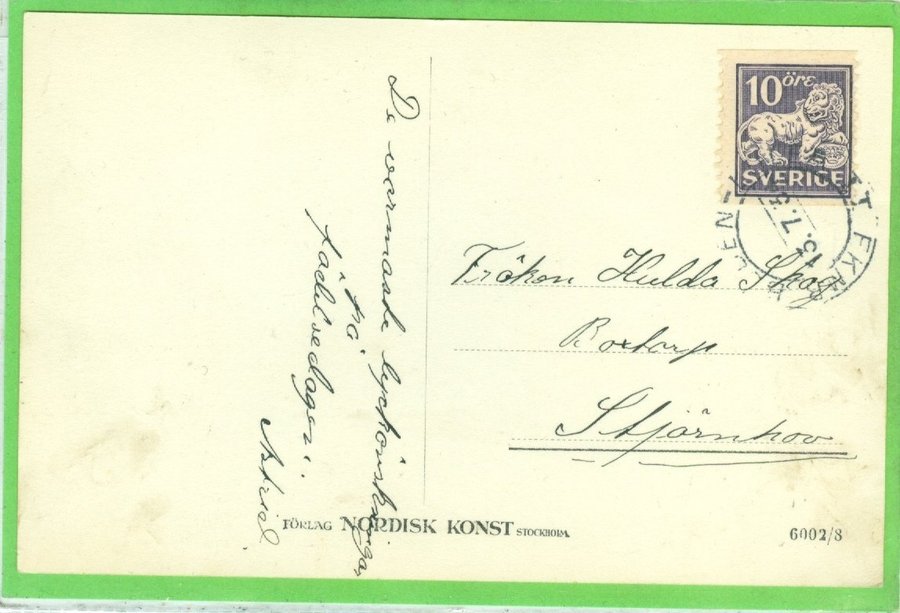 De varmaste lyckönskningar
på
födelsedagen.
Astrid
10 öre
SVERIGE
Fröken Hulda Skog
Boxtorp
Stjärnhov
FÖRLAG NORDISK KONST STOCKHOLM
6002/8